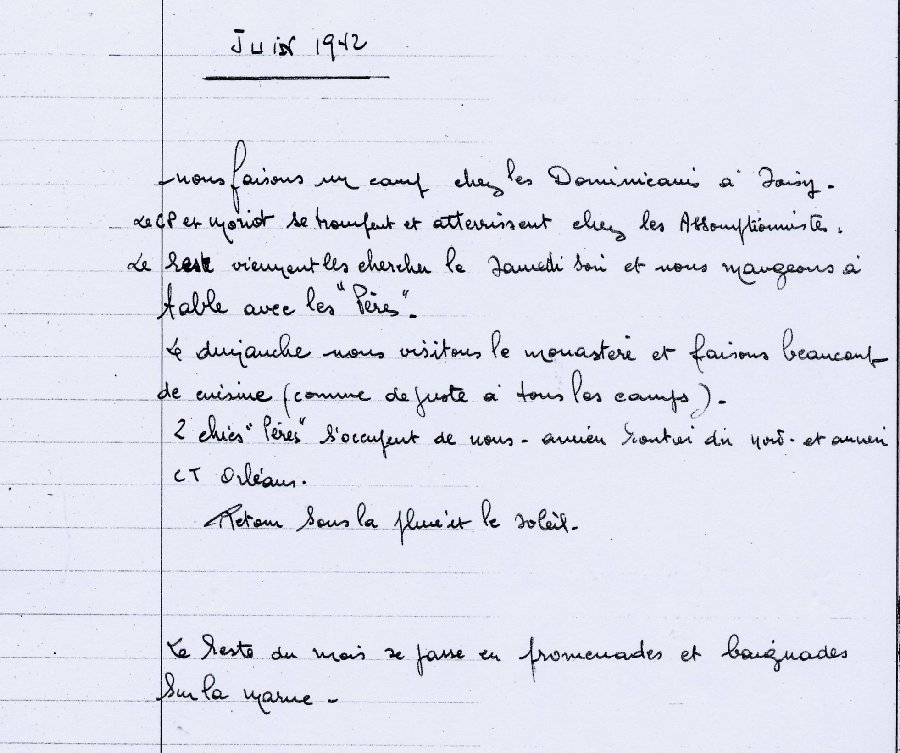 JUIN 1942
nous faisons un camp chez les Dominicains à Soisy.
Le CP et Moriot se trompent et atterrissent chez les Assomptionnistes.
Le reste viennent les chercher le Samedi soir et nous mangeons à
table avec les "Pères".
Le dimanche nous visitons le monastère et faisons beaucoup
de cuisine (comme de juste à tous les camps).
2 chics "Pères" s'occupent de nous - ancien routier du nord - et ancien
CT Orléans.
Retour sous la pluie et le soleil.
Le reste du mois se passe en promenades et baignades
sur la marne -